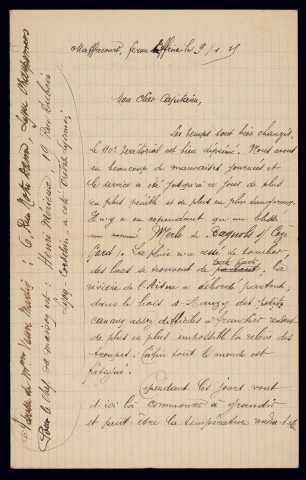 Maffrecourt, ferme d'Effene le 9/1 15
Mon cher Capitaine,
Les temps sont bien changés,
le 110e Territorial est bien déprimé. Nous avons
eu beaucoup de mauvaises journées et
le service a été jusqu'à ce jour de plus
en plus pénible et de plus en plus dangereux.
Il n'y a eu cependant que un blessé
un nommé Merle de Bagnols s/ Ceze
Gard). La pluie n'a cessé de tomber
des lacs se trouvent de partout, la
rivière de l'Aisne a débordé partout,
dans le bois s. des petits
canaux assez difficiles à franchir rendent
de plus en plus impossible la relève des
troupes. Enfin tout le monde est
fatigué.
Cependant les jours vont
d'ici là commencer à grandir
et peut être la température
Adresse de Mme Martin : 6, Rue Notre Dame, Lyon
Pour le chef de musique : Henri Mérieux, 19 Rue Dubois
Lyon